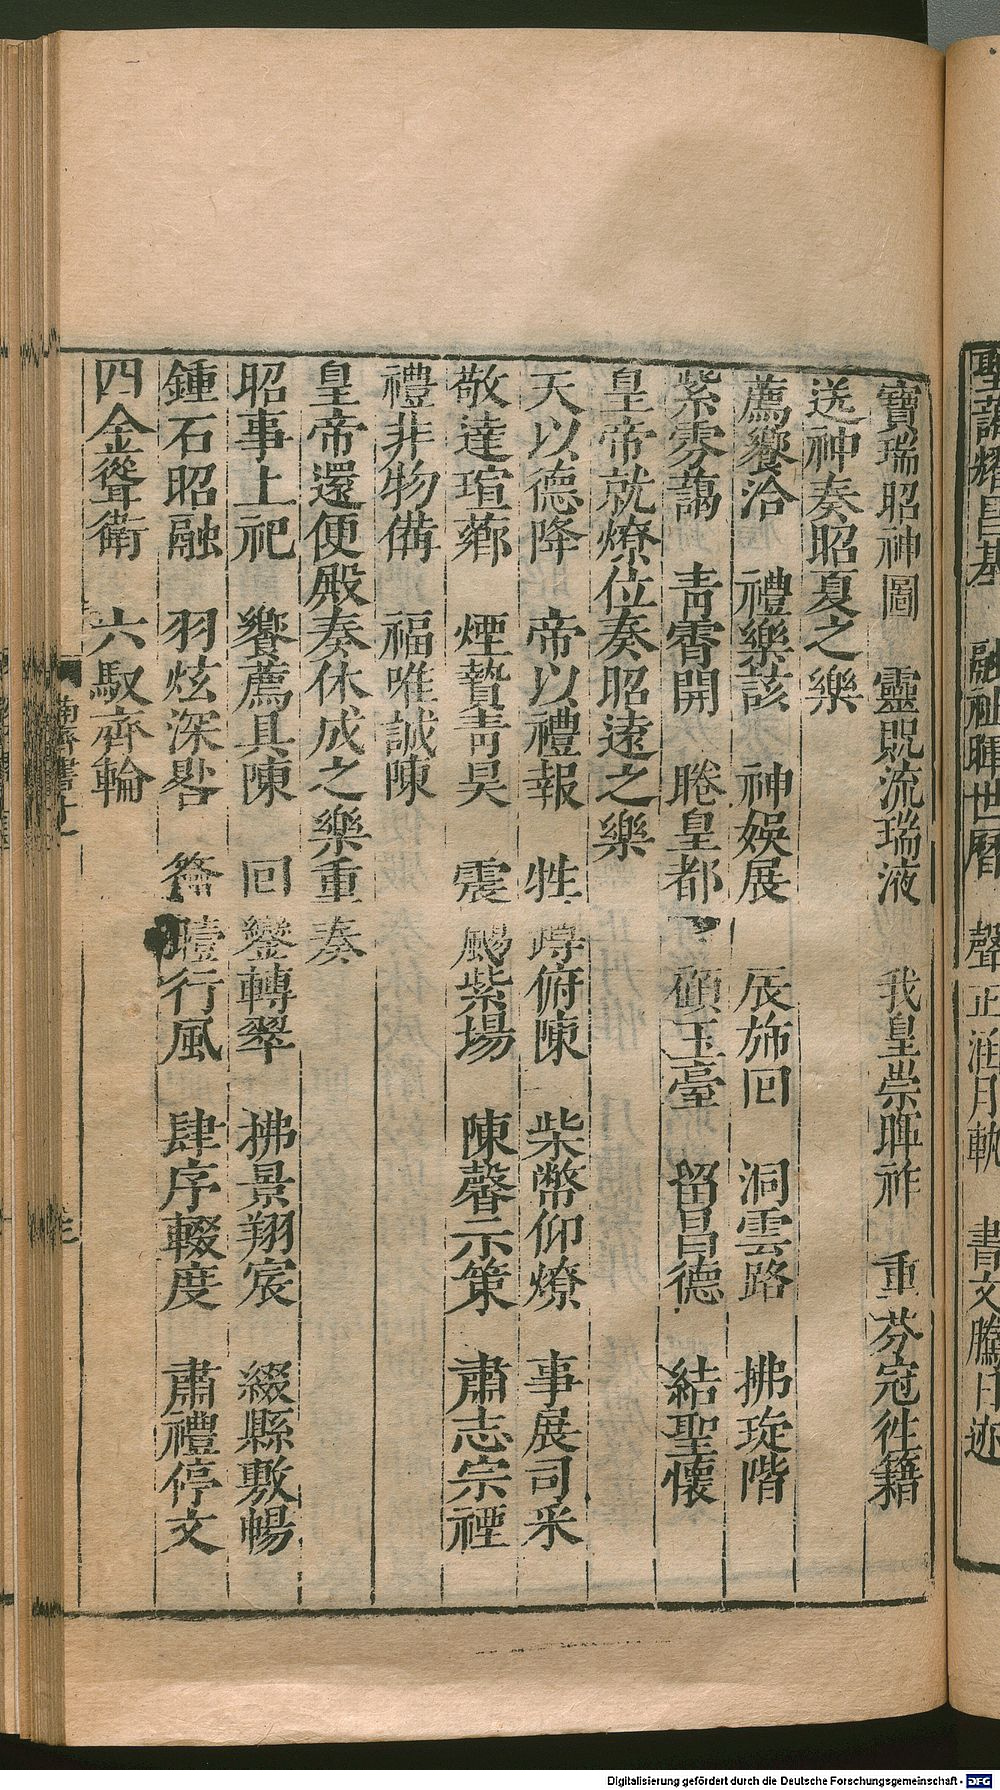 聖藹耀昌基　融祉暉世曆　聲正涵月軌　書文騰日迹
寶瑞昭神圖　靈貺流瑞液　我皇崇暉祚　重芬冠徃籍
送神奏昭夏之樂
薦饗洽　禮樂該　神娛展　辰旆回　洞雲路　拂琁階
紫雰藹　青霄開　睠皇都　顧玉臺　留昌德　結聖懷
皇帝就燎位奏昭遠之樂
天以德降　帝以禮報　牲罇俯陳　柴幣仰燎　事展司采
敬達瑄薌　煙贄青昊　震颺紫場　陳馨示策　肅志宗禋
禮非物備　福唯誠陳
皇帝還便殿奏休成之樂重奏
昭事上祀　饗薦具陳　回鑾轉翠　拂景翔宸　綴縣敷暢
鍾石昭融　羽炫深晷　籥曀行風　肆序輟度　肅禮停文
四金聳衛　六馭齊輪
南齊書十一
Digitalisierung gefördert durch die Deutsche Forschungsgemeinschaft - DFG